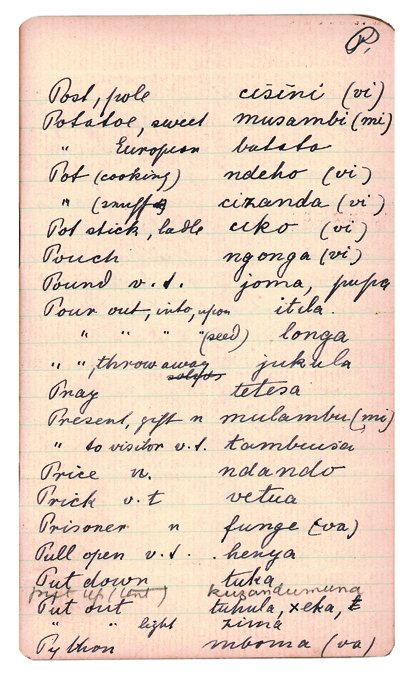 P.
Post, pole cišini (vi)
Potatoe, sweet musambi (mi)
" European batata
Pot (cooking) ndeho (vi)
" (snuff) cizanda (vi)
Pot stick, ladle ciko (vi)
Pouch ngonga (vi)
Pound v.t. joma, pupa
Pour out, into, upon itila.
" " " (seed) longa
" ", throw away jukula
Pray tetesa
Present, gift, n mulambu (mi)
" to visitor v.t. tambuisa
Price n. ndando
Prick v.t vetua
Prisoner n funge (va)
Pull open v.t. henya
Put down tuka
put up (tent) kuzandumuna
Put out tuhula, xeka, t
" " light zima
Python mboma (va)